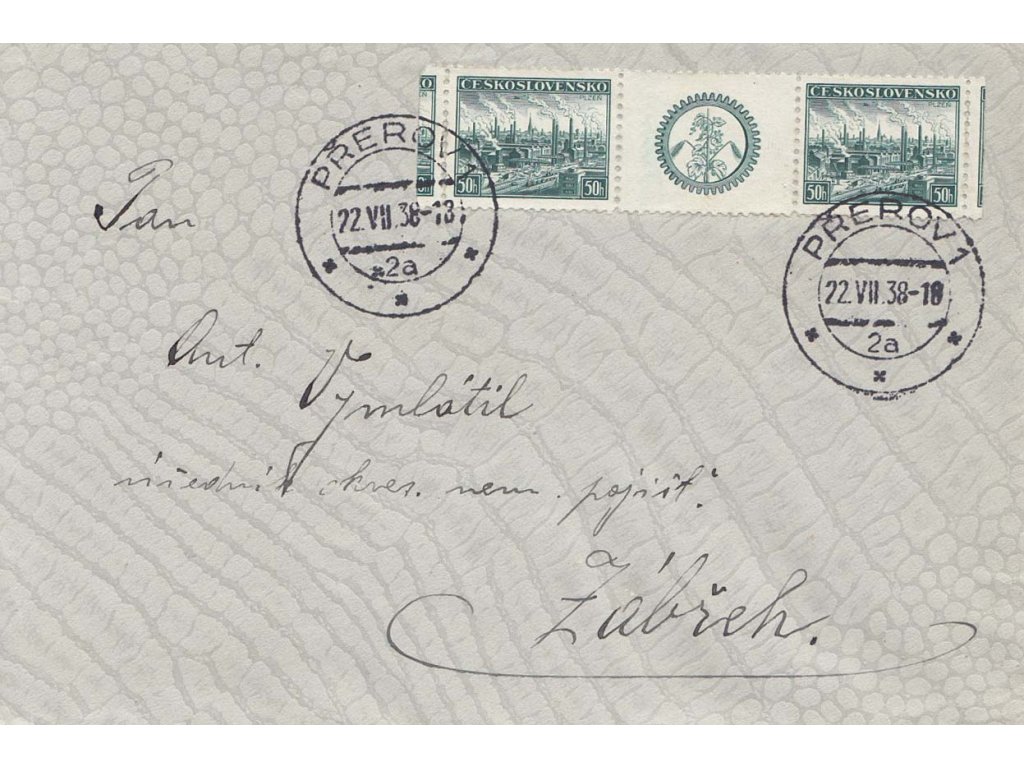 ČESKOSLOVENSKO
PLZEŇ
50h 50h
ČESKOSLOVENSKO
PLZEŇ
50h 50h
PŘEROV 1
22.VII.38-18
2a
PŘEROV 1
22.VII.38-18
2a
Pan
Ant. Vymlátil
úředník okres. nem. pojišť.
Zábřeh.